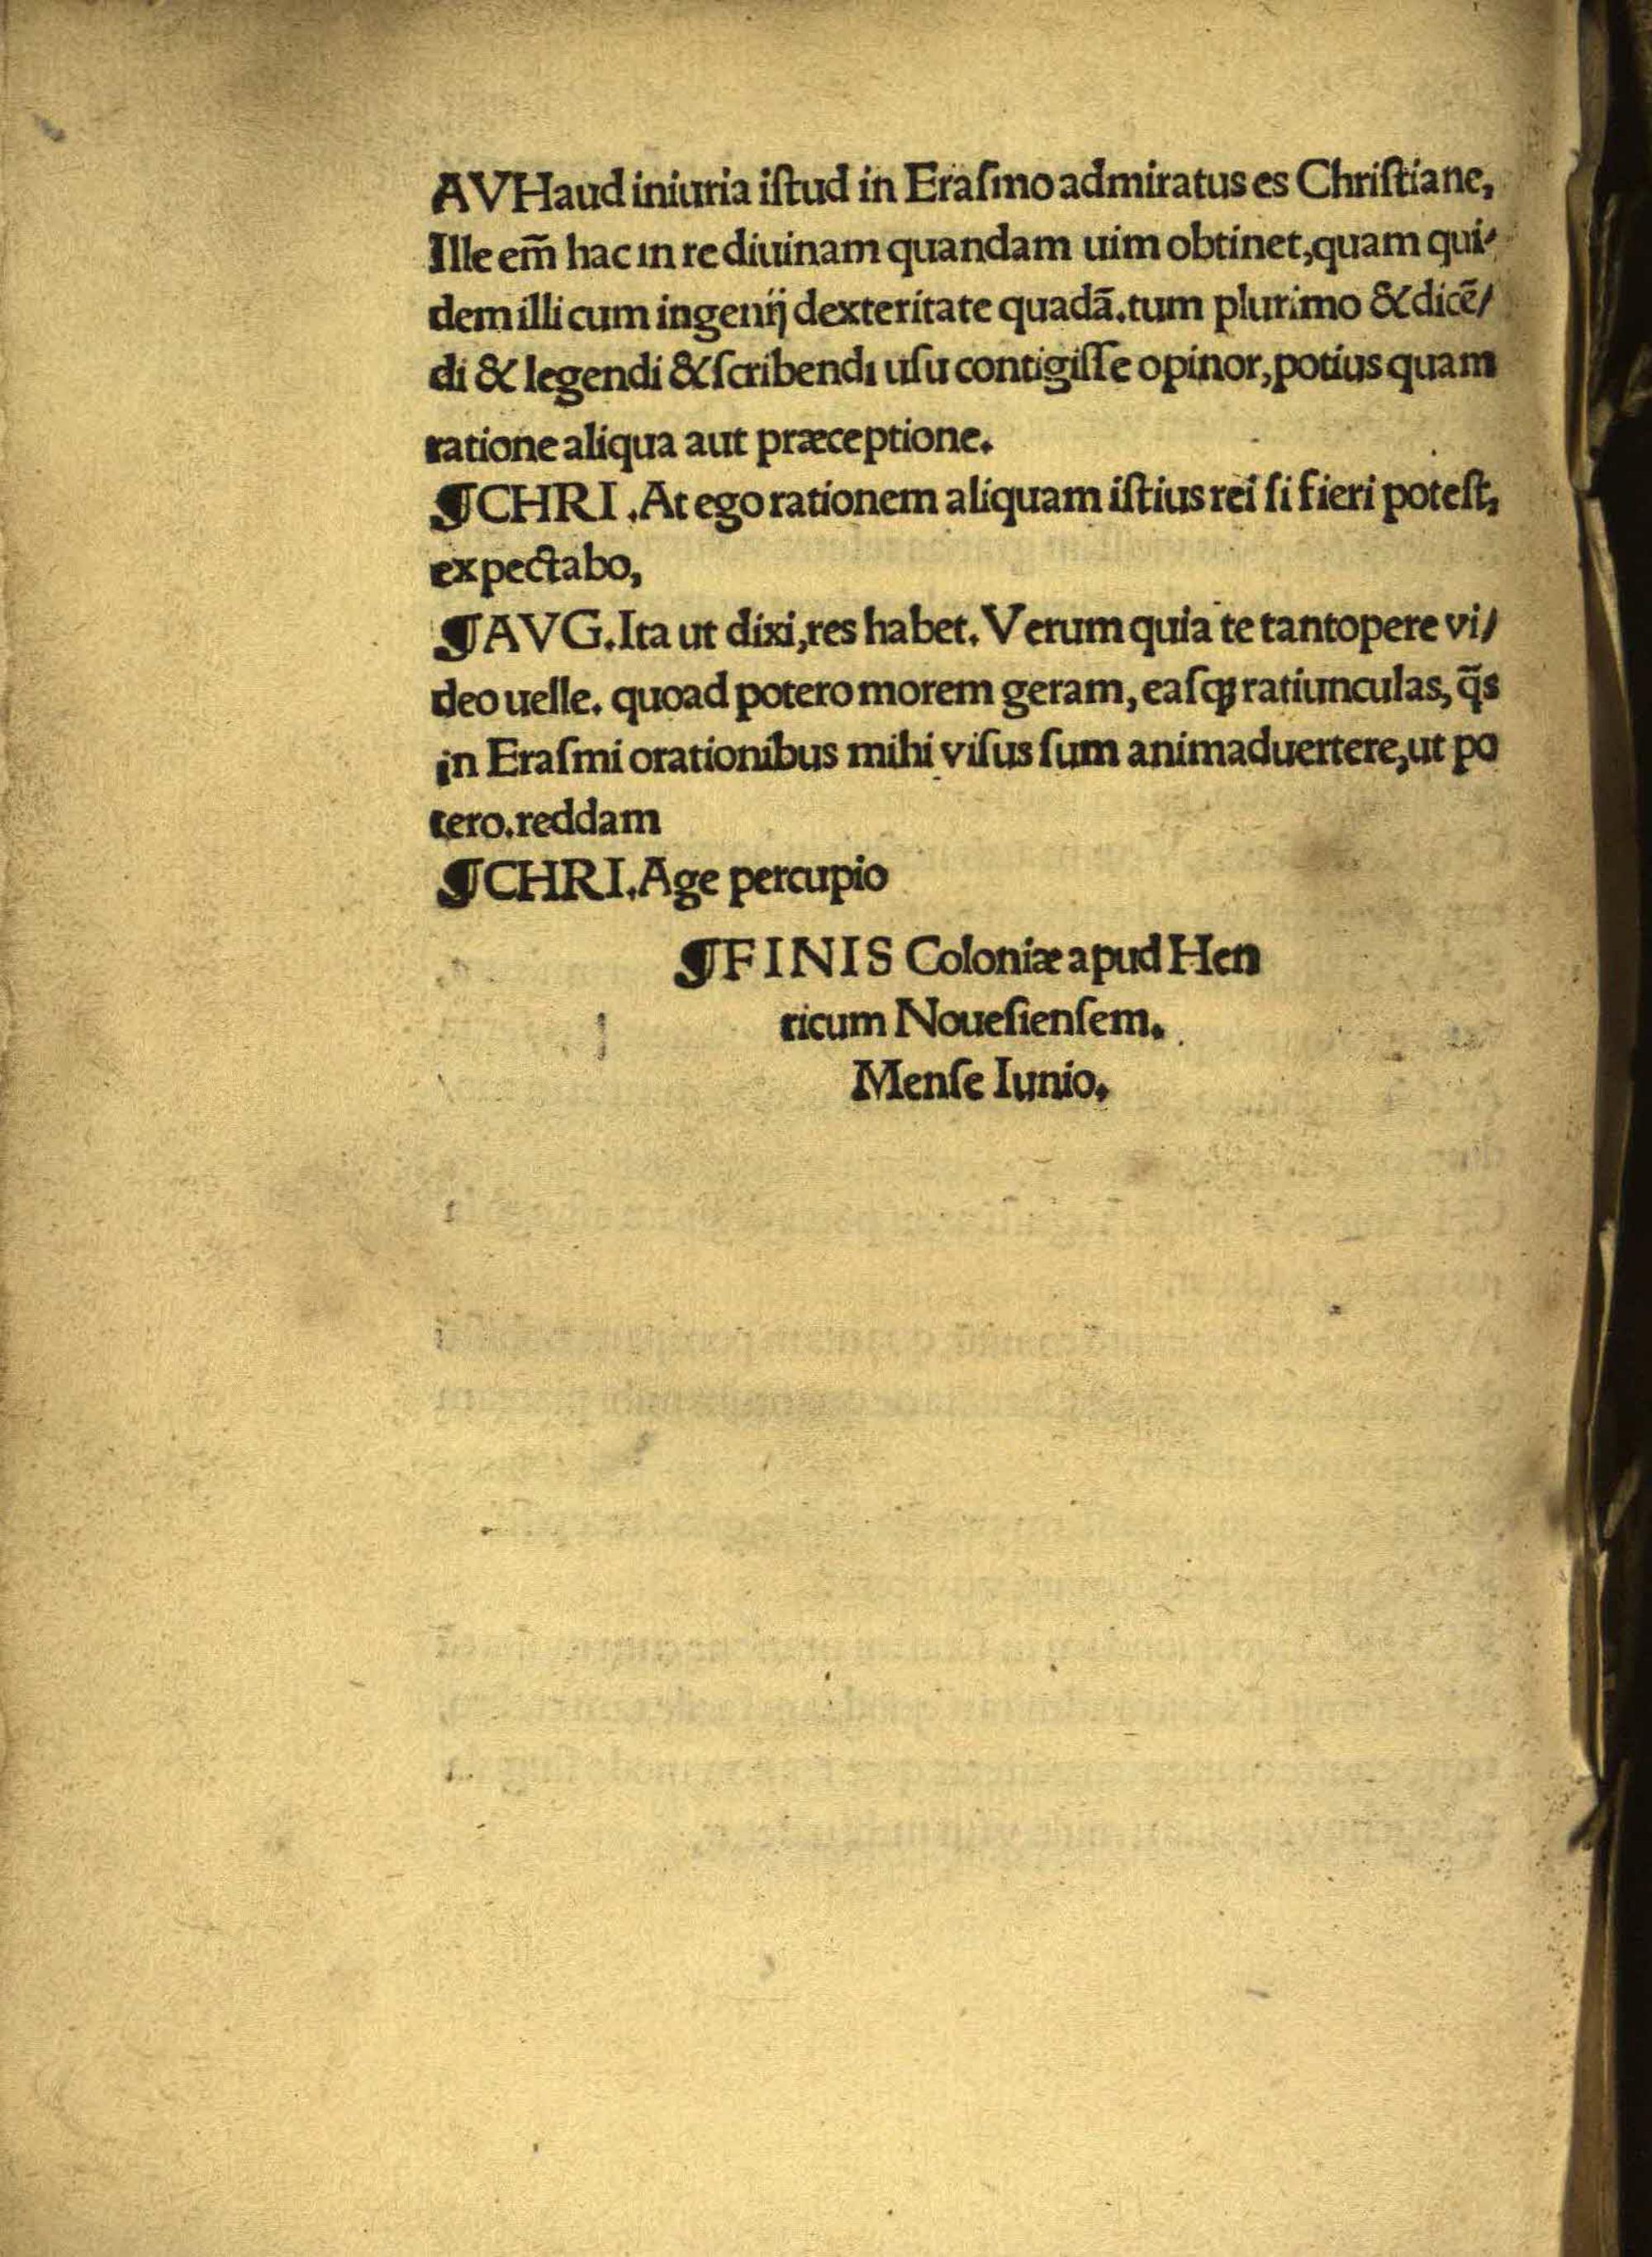 AVHaud iniuria iſtud in Eraſmo admiratus es Chriſtiane,
Ille em̄ hac ın re diuinam quandam uim obtinet,quam qui/
dem illi cum ingenij dexteritate quadā.tum plurimo & dicē/
di & legendi & ſcribendı uſu contigiſſe opinor,potius quam
ratione aliqua aut præceptione.
¶CHRI.At ego rationem aliquam iſtius rei ſi fieri poteſt,
expectabo,
¶AVG.Ita ut dixi,res habet.Verum quia te tantopere vi/
deo uelle. quoad potero morem geram, eaſqꝫ ratiunculas, q̄s
in Eraſmi orationibus mihi viſus ſum animaduertere,ut po
tero.reddam
¶CHRI.Age percupio
¶FINIS Coloniæ apud Hen
ricum Noueſienſem.
Menſe Iunio.